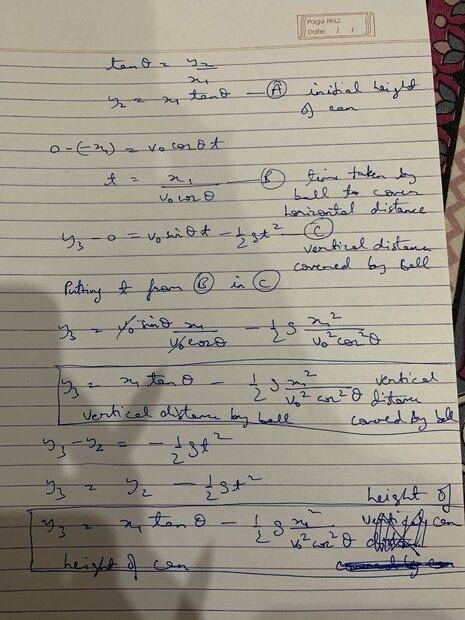 Page No.:
Date: / /
tanθ = y₂/x₁
y₂ = x₁ tanθ — Ⓐ initial height of can
0-(-x₁) = v₀ cosθ t
t = x₁/(v₀ cosθ) — Ⓑ time taken by ball to cover horizontal distance
y₃ - 0 = v₀ sinθ t - 1/2 g t² — Ⓒ vertical distance covered by ball
Putting t from Ⓑ in Ⓒ
y₃ = v₀ sinθ x₁/(v₀ cosθ) - 1/2 g x₁²/(v₀² cos²θ)
y₃ = x₁ tanθ - 1/2 g x₁²/(v₀² cos²θ) vertical distance covered by ball
vertical distance by ball
y₃ - y₂ = - 1/2 g t²
y₃ = y₂ - 1/2 g t²
y₃ = x₁ tanθ - 1/2 g x₁²/(v₀² cos²θ) height of can
height of can